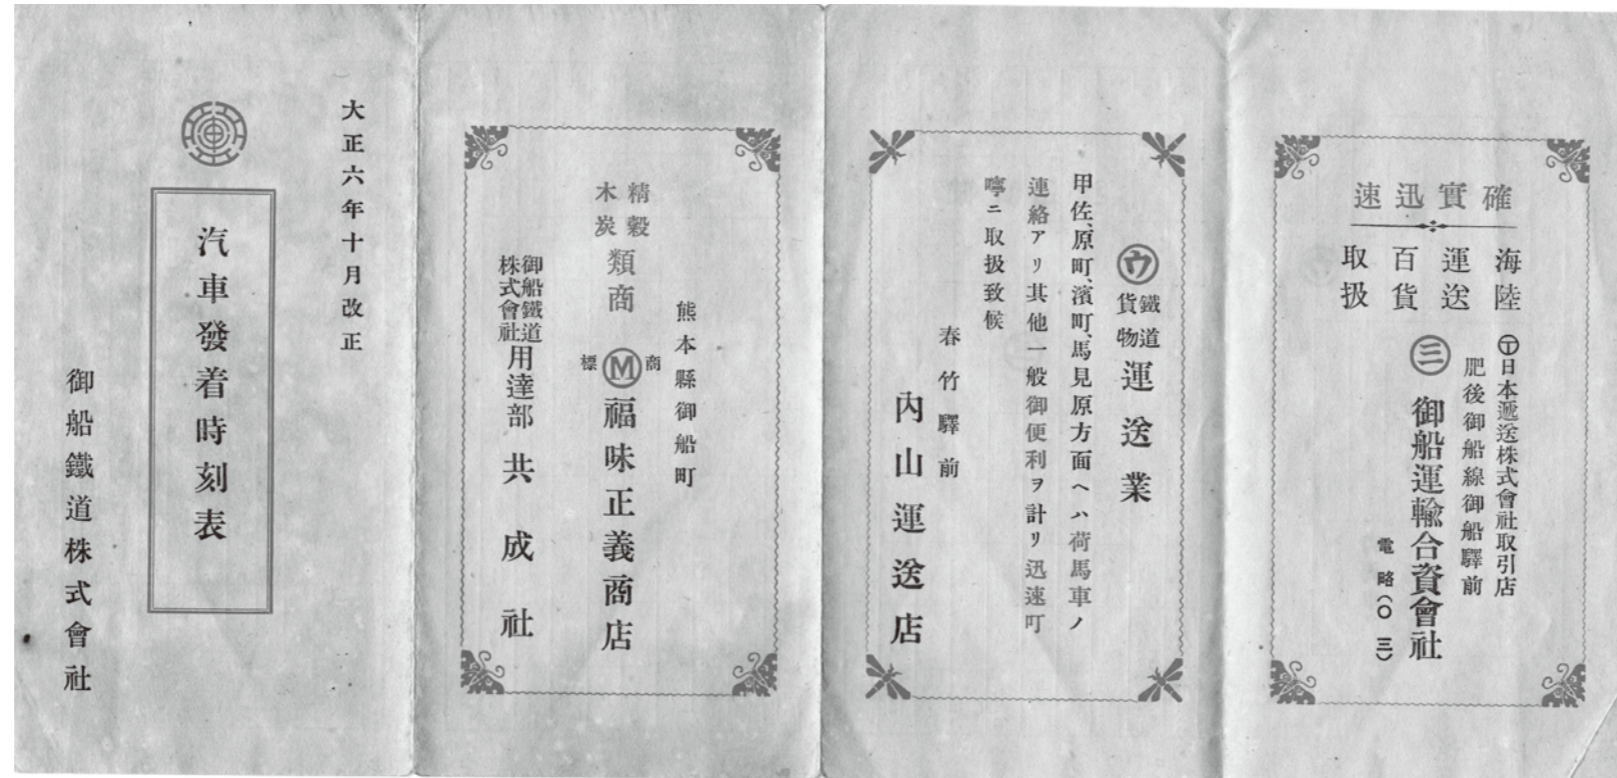 確實迅速
海陸
運送
百貨
取扱
㊦日本遞送株式會社取引店
肥後御船線御船驛前
㊂御船運輸合資會社
電略(〇三)
㋒鐵道貨物運送業
甲佐、原町、濱町、馬見原方面ヘハ荷馬車ノ
連絡アリ其他一般御便利ヲ計リ迅速叮
嚀ニ取扱致候
春竹驛前
內山運送店
熊本縣御船町
精穀
木炭
類商
商標
Ⓜ福味正義商店
御船鐵道
株式會社
用達部共成社
大正六年十月改正
汽車發着時刻表
御船鐵道株式會社